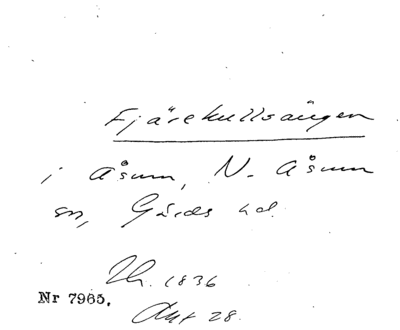 Fjärekullsängen
i Åsum, N. Åsum
sn, Gärds hd.
Lh. 1836
Nr 7965.
Akt 28.